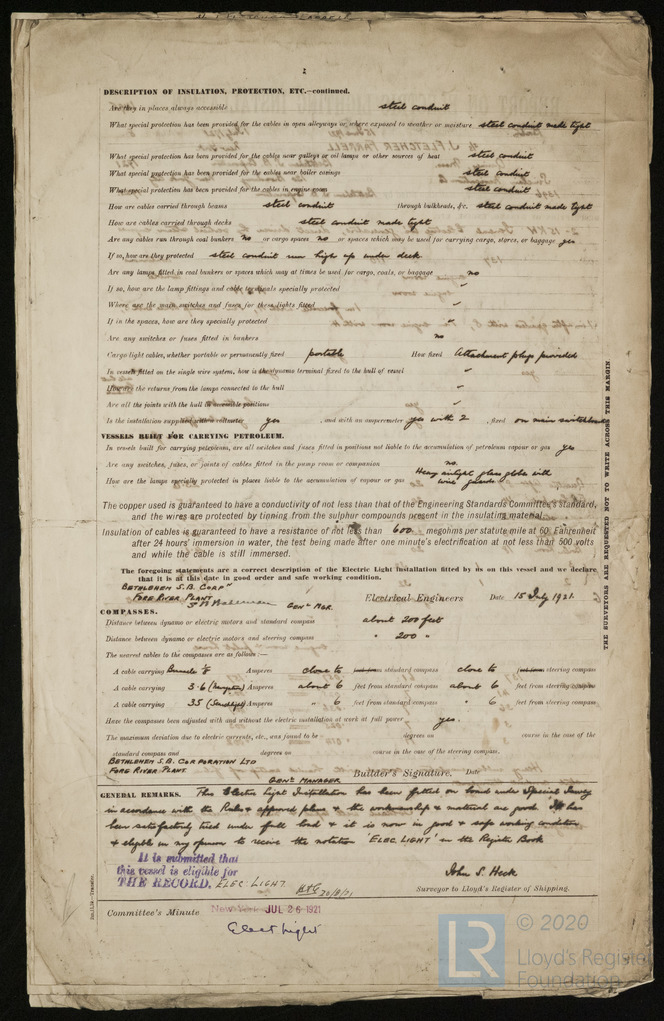 2
DESCRIPTION OF INSULATION, PROTECTION, ETC.—continued.
Are they in places always accessible steel conduit
What special protection has been provided for the cables in open alleyways or where exposed to weather or moisture steel conduit made tight
What special protection has been provided for the cables near galleys or oil lamps or other sources of heat steel conduit
What special protection has been provided for the cables near boiler casings steel conduit
What special protection has been provided for the cables in engine room steel conduit
How are cables carried through beams steel conduit through bulkheads, &c. steel conduit made tight
How are cables carried through decks steel conduit made tight
Are any cables run through coal bunkers no or cargo spaces no or spaces which may be used for carrying cargo, stores, or baggage yes
If so, how are they protected steel conduit run high up under deck
Are any lamps fitted in coal bunkers or spaces which may at times be used for cargo, coals, or baggage no
If so, how are the lamp fittings and cable terminals specially protected
Where are the main switches and fuses for these lights fitted
If in the spaces, how are they specially protected
Are any switches or fuses fitted in bunkers no
Cargo light cables, whether portable or permanently fixed portable How fixed Attachment plugs provided
In vessels fitted on the single wire system, how is the dynamo terminal fixed to the hull of vessel
How are the returns from the lamps connected to the hull
Are all the joints with the hull in accessible positions
Is the installation supplied with a voltmeter yes , and with an amperemeter yes with 2 , fixed on main switchboard
VESSELS BUILT FOR CARRYING PETROLEUM.
In vessels built for carrying petroleum, are all switches and fuses fitted in positions not liable to the accumulation of petroleum vapour or gas yes
Are any switches, fuses, or joints of cables fitted in the pump room or companion no.
How are the lamps specially protected in places liable to the accumulation of vapour or gas Heavy airtight glass globes with wire guards
The copper used is guaranteed to have a conductivity of not less than that of the Engineering Standards Committee's standard,
and the wires are protected by tinning from the sulphur compounds present in the insulating material.
Insulation of cables is guaranteed to have a resistance of not less than 600 megohms per statute mile at 60° Fahrenheit
after 24 hours' immersion in water, the test being made after one minute's electrification at not less than 500 volts
and while the cable is still immersed.
The foregoing statements are a correct description of the Electric Light installation fitted by us on this vessel and we declare
that it is at this date in good order and safe working condition.
BETHLEHEM S.B. CORP'N
FORE RIVER PLANT
GEN'L MGR. Electrical Engineers Date 15 July 1921.
COMPASSES.
Distance between dynamo or electric motors and standard compass about 200 feet
Distance between dynamo or electric motors and steering compass " 200 "
The nearest cables to the compasses are as follows:—
A cable carrying Binnacle Amperes close to feet from standard compass close to feet from steering compass
A cable carrying 3.6 Amperes about 6 feet from standard compass about 6 feet from steering compass
A cable carrying 35 Amperes " 6 feet from standard compass " 6 feet from steering compass
Have the compasses been adjusted with and without the electric installation at work at full power yes.
The maximum deviation due to electric currents, etc., was found to be degrees on course in the case of the
standard compass and degrees on course in the case of the steering compass.
BETHLEHEM S.B. CORPORATION LTD
FORE RIVER PLANT
GEN'L MANAGER Builder's Signature. Date
GENERAL REMARKS. This Electric Light Installation has been fitted on board under Special Survey
in accordance with the Rules & approved plans & the workmanship & material are good. It has
been satisfactorily tried under full load & it is now in good & safe working condition
& eligible in my opinion to receive the notation 'ELEC LIGHT' in the Register Book
It is submitted that
this vessel is eligible for
THE RECORD. ELEC: LIGHT.
John S. Heck
Surveyor to Lloyd's Register of Shipping.
Committee's Minute New York JUL 26 1921
Elect Light
THE SURVEYORS ARE REQUESTED NOT TO WRITE ACROSS THIS MARGIN
LR
© 2020
Lloyd's Register
Foundation